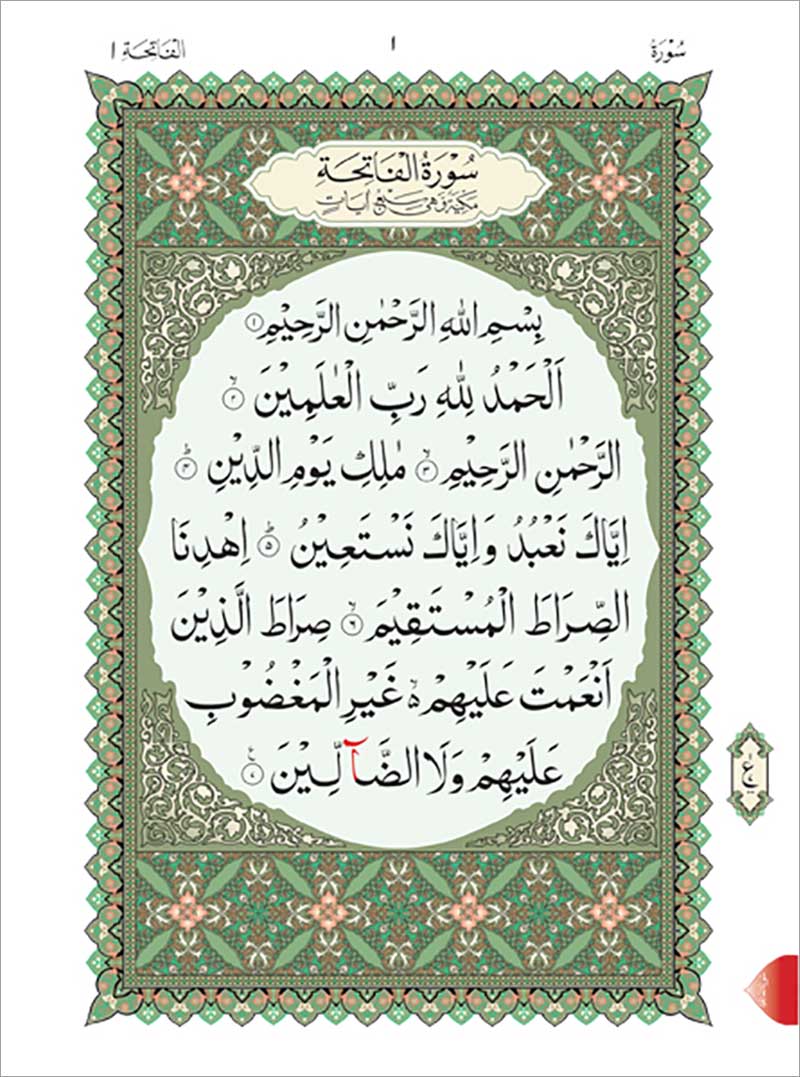 سُوْرَةُ ١ الْفَاتِحَةِ ١
سُوْرَةُ الْفَاتِحَةِ
مَكِّيَّةٌ وَّهِىَ سَبْعُ اٰيَاتٍ
بِسْمِ اللهِ الرَّحْمٰنِ الرَّحِيْمِ ١
اَلْحَمْدُ لِلّٰهِ رَبِّ الْعٰلَمِيْنَ ۙ ٢
الرَّحْمٰنِ الرَّحِيْمِ ۙ ٣ مٰلِكِ يَوْمِ الدِّيْنِ ؕ ۴
اِيَّاكَ نَعْبُدُ وَاِيَّاكَ نَسْتَعِيْنُ ؕ ۵ اِهْدِنَا
الصِّرَاطَ الْمُسْتَقِيْمَ ۙ ۶ صِرَاطَ الَّذِيْنَ
اَنْعَمْتَ عَلَيْهِمْ ۙ۬ غَيْرِ الْمَغْضُوْبِ
عَلَيْهِمْ وَلَا الضَّآلِّيْنَ ٧
ع